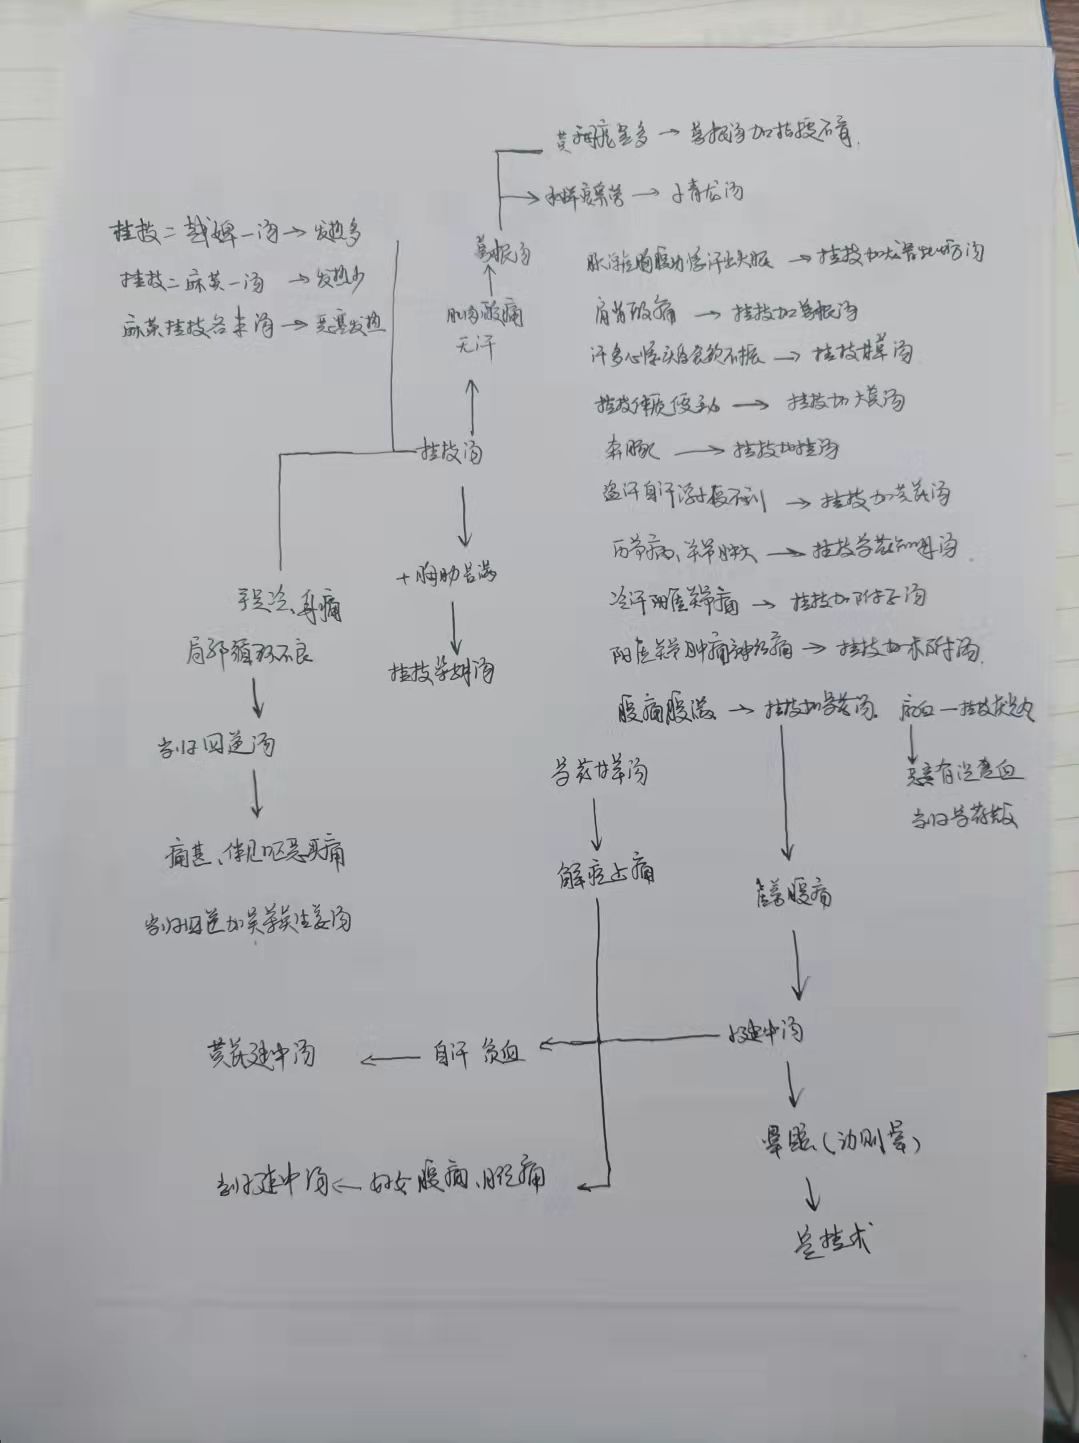 黄稠痰量多 → 葛根汤加桔梗石膏
水样痰鼻涕 → 小青龙汤
桂枝二越婢一汤 → 发热多
桂枝二麻黄一汤 → 发热少
麻黄桂枝各半汤 → 恶寒发热
葛根汤
肌肉酸痛
无汗
桂枝汤
→ 桂枝加龙骨牡蛎汤
肩背酸痛 → 桂枝加葛根汤
→ 桂枝甘草汤
桂枝体质便秘 → 桂枝加大黄汤
奔豚 → 桂枝加桂汤
盗汗自汗浮小便不利 → 桂枝加黄芪汤
历节病、关节肿大 → 桂枝芍药知母汤
冷汗阳虚关节痛 → 桂枝加附子汤
阳虚关节肿痛神经痛 → 桂枝加术附汤
腹痛腹满 → 桂枝加芍药汤
瘀血 — 桂枝茯苓丸
当归芍药散
+胸胁苦满
桂枝柴胡汤
手足冷、身痛
局部循环不良
当归四逆汤
痛甚、伴见呕恶头痛
当归四逆加吴茱萸生姜汤
芍药甘草汤
解痉止痛
腹痛
小建中汤
自汗 贫血
黄芪建中汤
妇女腹痛、月经痛
当归建中汤
晕眩(动则晕)
苓桂术